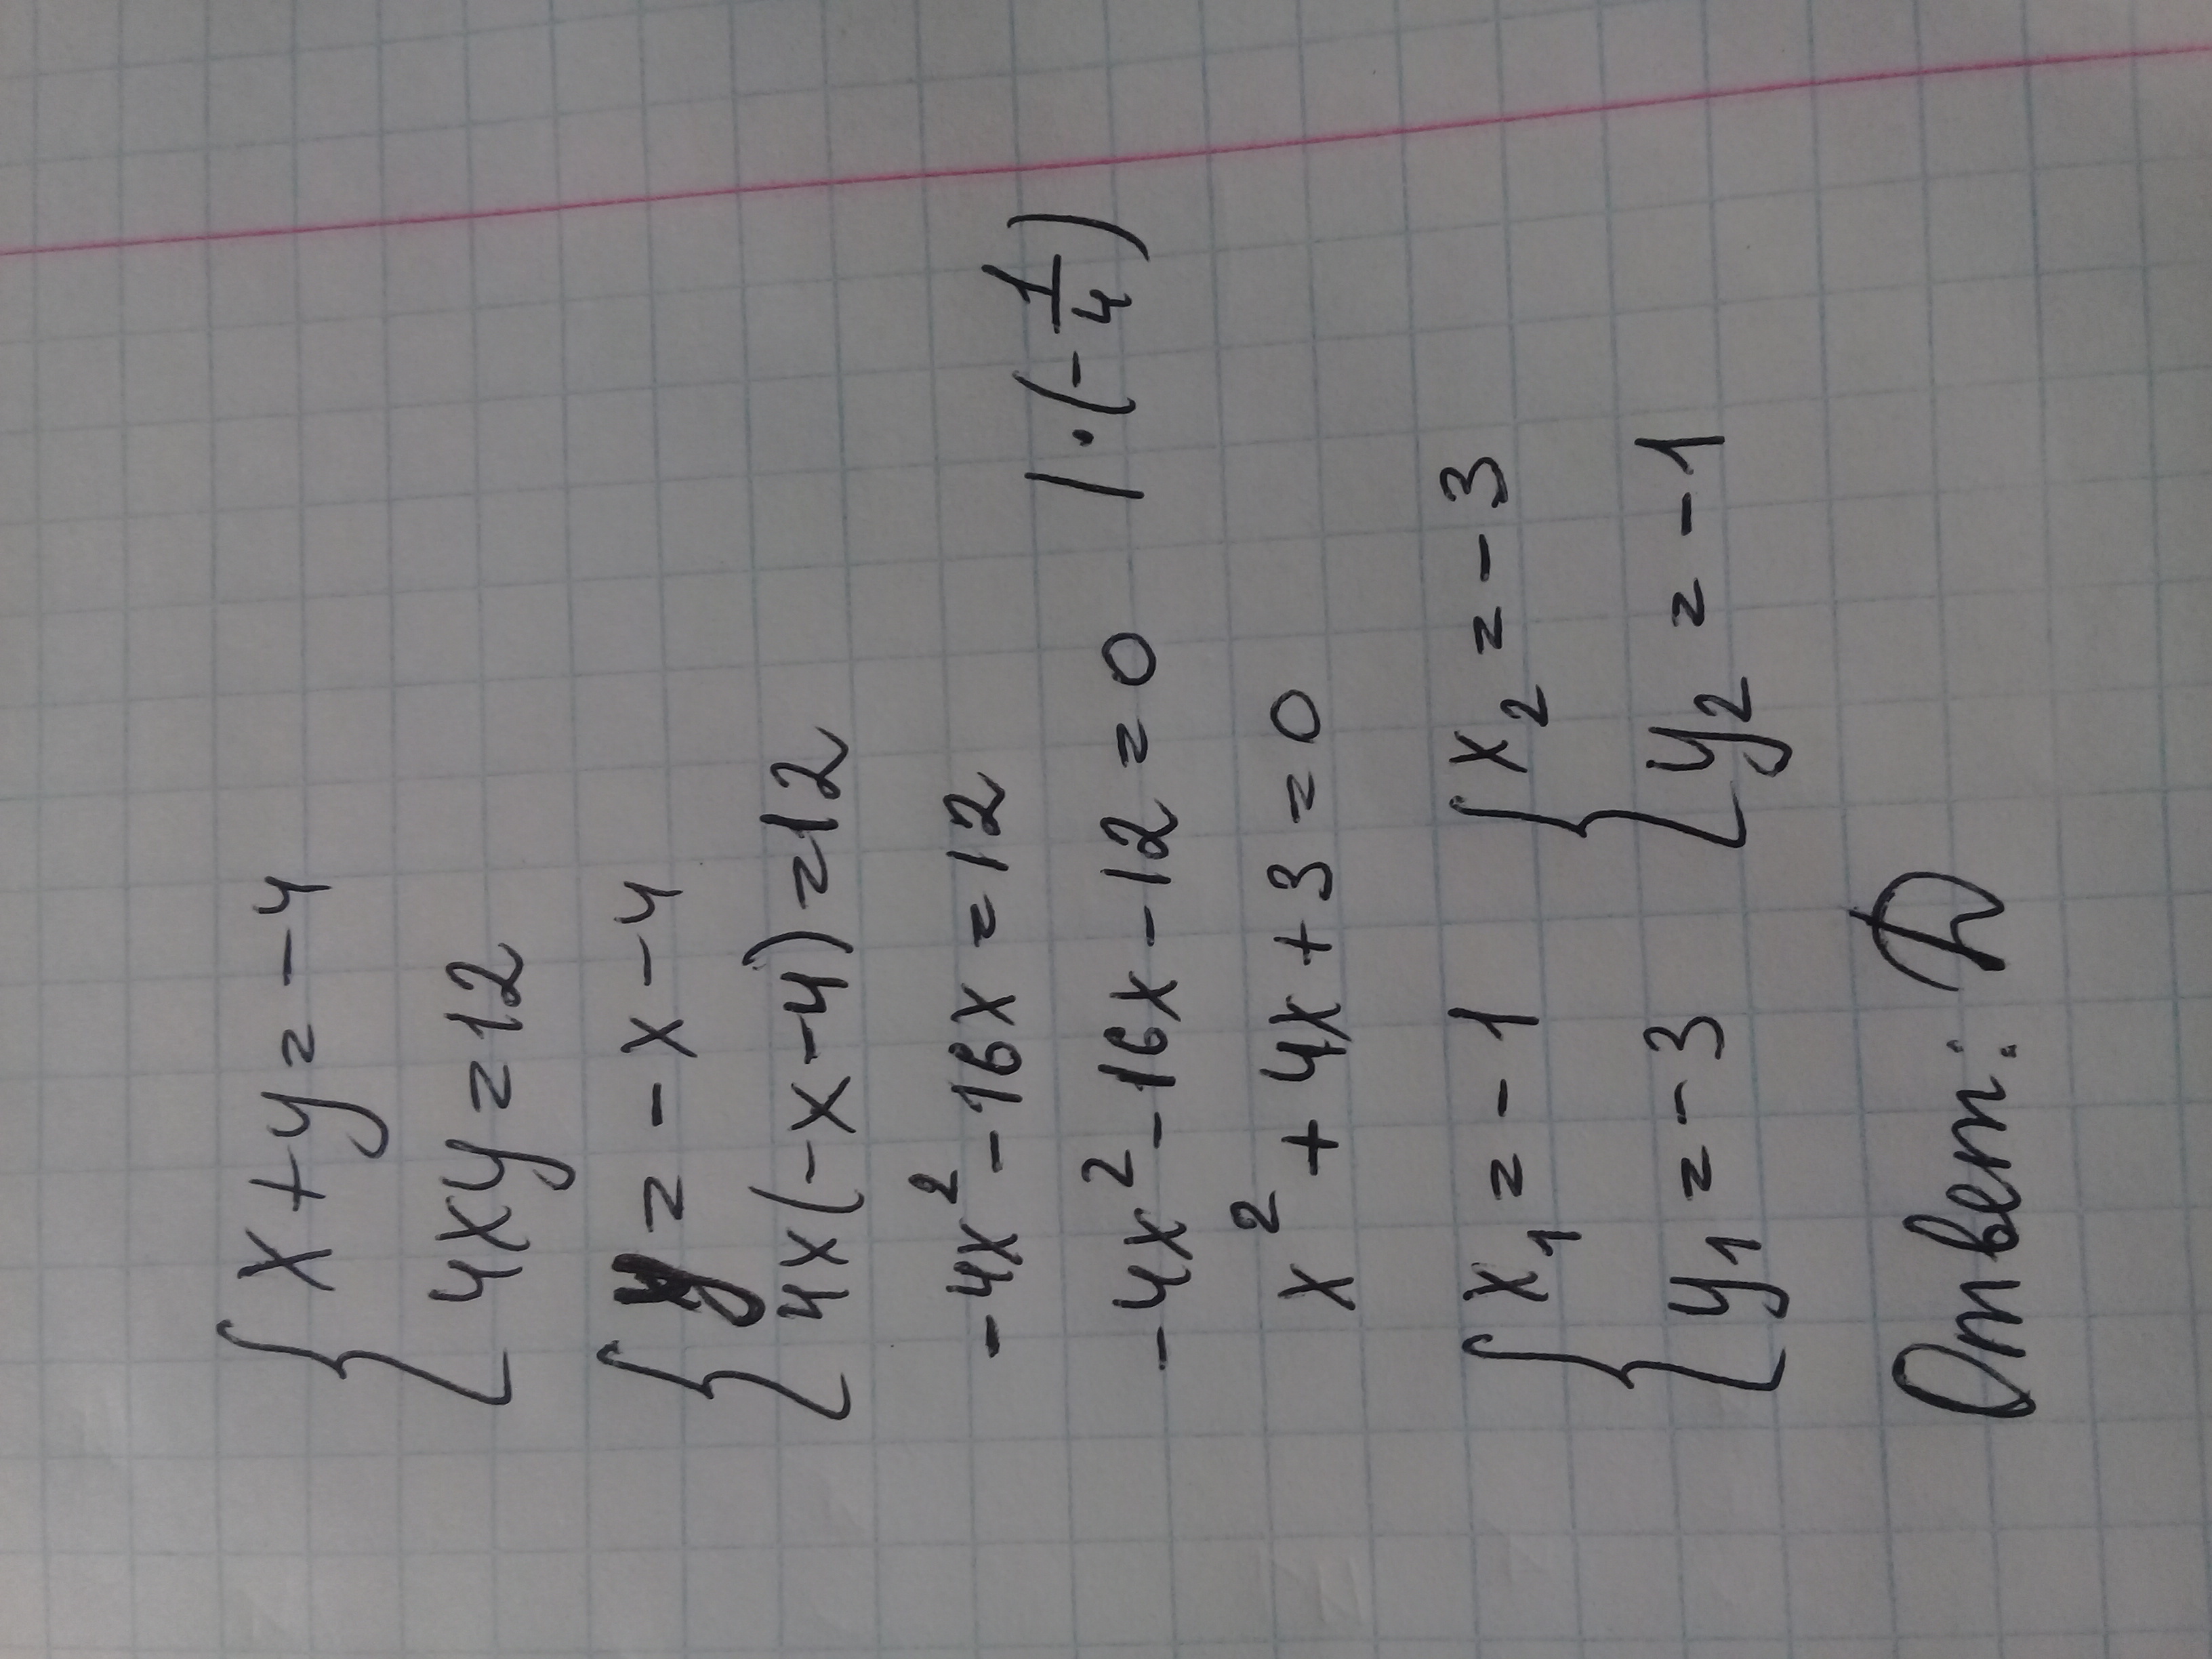 { x + y = -4
4xy = 12
{ y = -x - 4
4x(-x-4) = 12
-4x² - 16x = 12
-4x² - 16x - 12 = 0 | · (-1/4)
x² + 4x + 3 = 0
{ x₁ = -1 { x₂ = -3
y₁ = -3 y₂ = -1
Ответ: